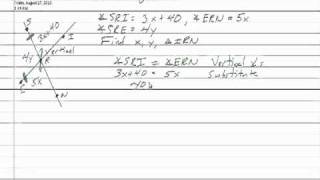 ∡SRI = 3x+40, ∡ERN = 5x
∡SRE = 4y
Find x, y, ∡IRN
∡SRI = ∡ERN Vertical ∡'s
3x+40 = 5x Substitute
-40
S
40
3x
I
Vertical
4y
R
5x
E
N